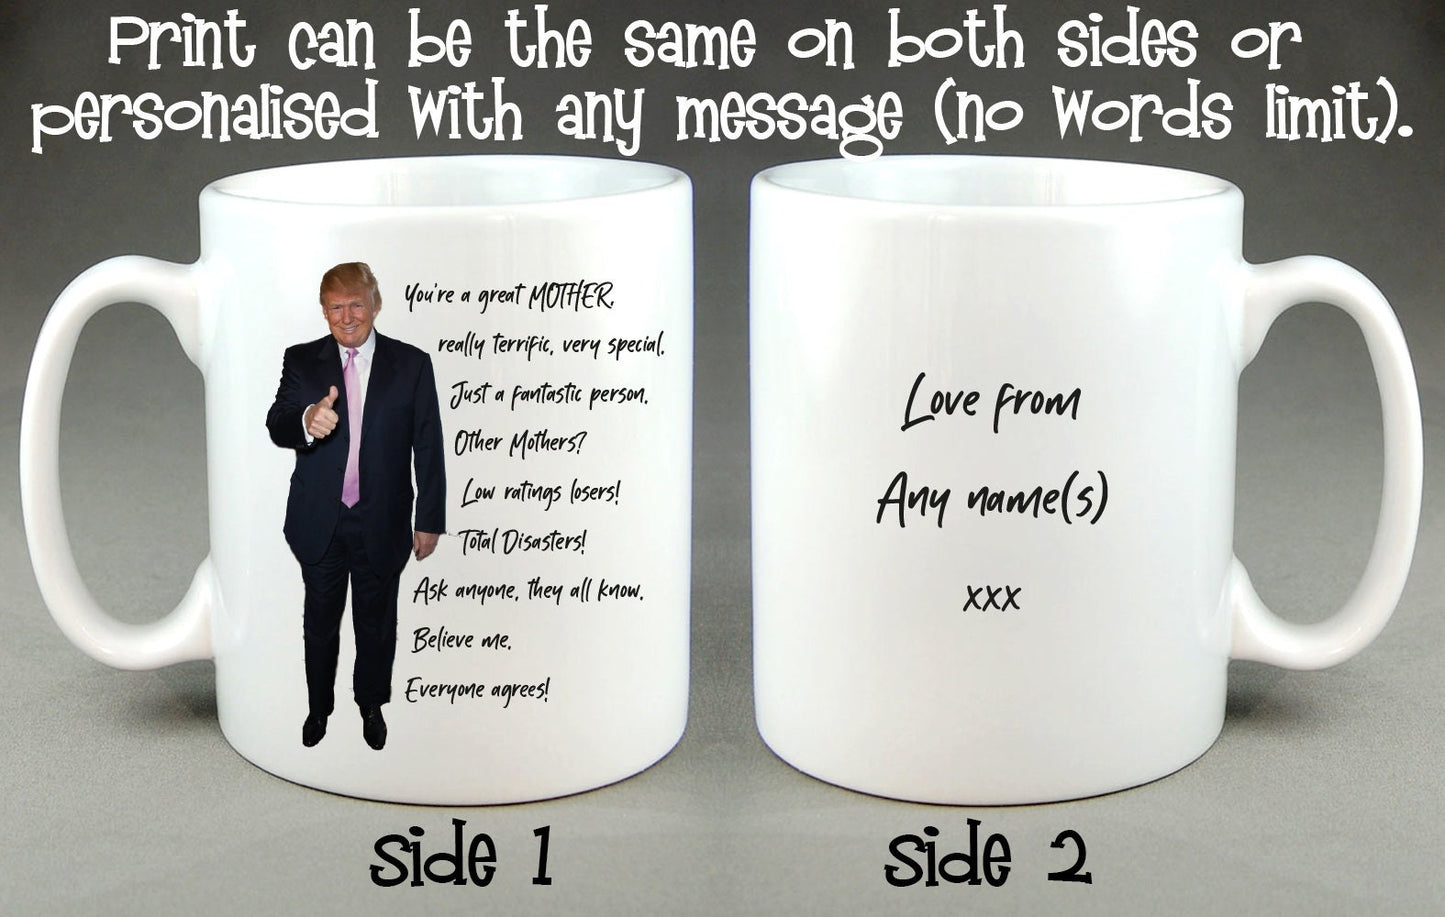 Print can be the same on both sides or
personalised with any message (no words limit).
You're a great MOTHER,
really terrific, very special.
Just a fantastic person.
Other Mothers?
Low ratings losers!
Total Disasters!
Ask anyone, they all know.
Believe me,
Everyone agrees!
Love from
Any name(s)
xxx
side 1
side 2